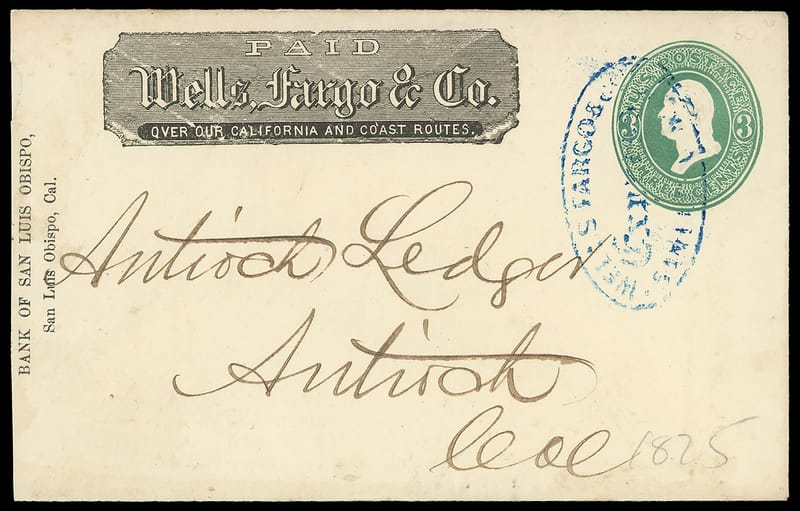 PAID
Wells, Fargo & Co.
OVER OUR CALIFORNIA AND COAST ROUTES.
3 3
WELLS FARGO &
BANK OF SAN LUIS OBISPO,
San Luis Obispo, Cal.
Antioch Ledger
Antioch
Cal
1825